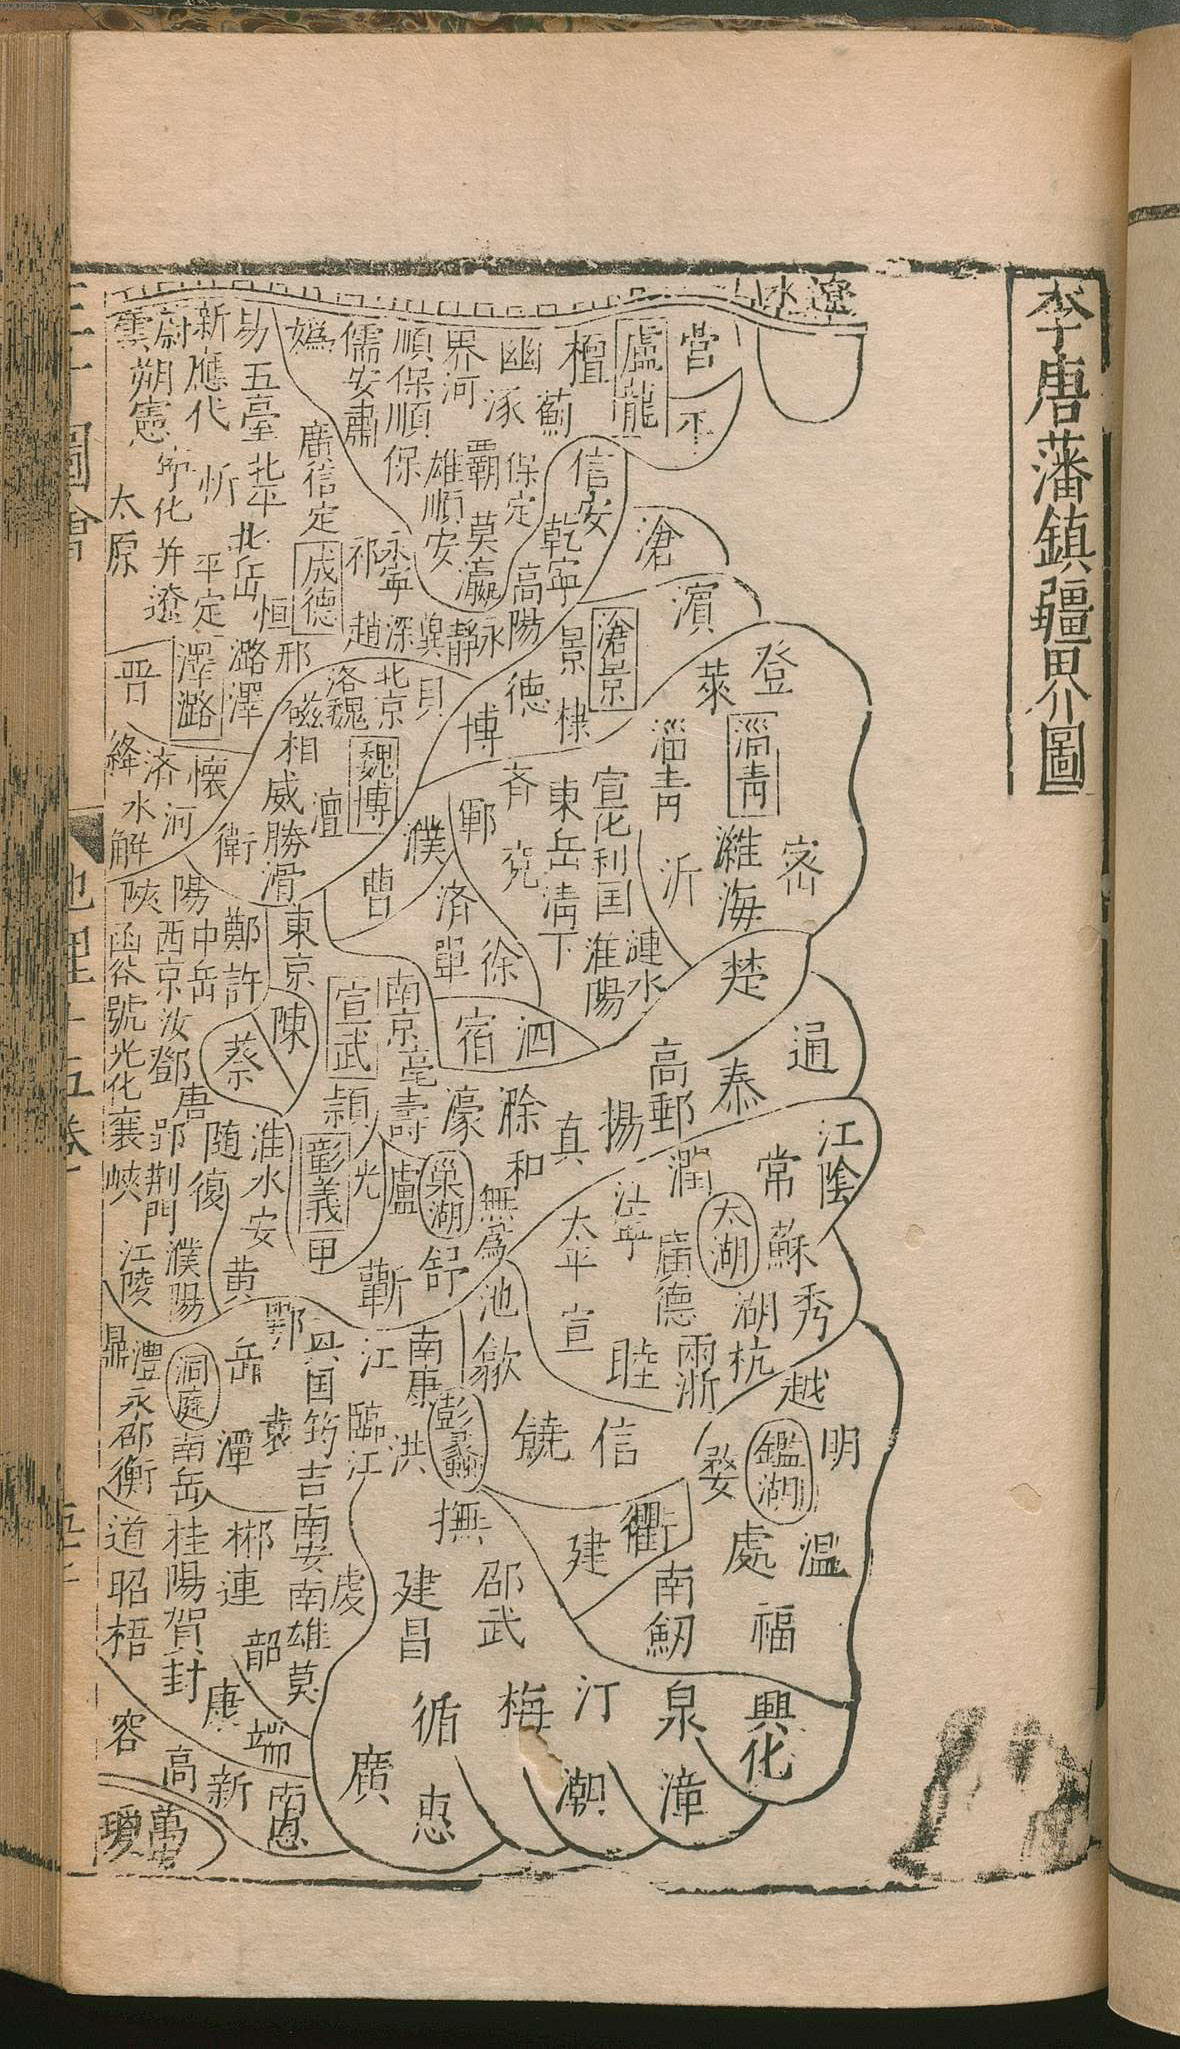 李唐藩鎮疆界圖
遼水
營
平
盧龍
檀
薊
幽
涿
界河
順保順保
儒安肅
媯
易五臺北平北岳恒
新應代
忻
平定
蔚朔憲
雲
寧化并遼
太原
廣信定
成德
祁
永寧
雄順安
霸莫瀛
保定
信安
乾寧
高陽
滄
濱
滄景
景
棣
德
博
永
靜
冀
深
趙
邢
潞澤
澤潞
晋
絳
済河
水
懷
解
衛
磁
相
威勝
滑
洺魏
北京
貝
魏博
澶
濮
曹
鄆
斉
兖
東岳清下
宣化利国
淮陽
漣水
淄青
淄青
萊
登
濰海
密
沂
済
單
徐
宿
泗
楚
通
泰
高郵
揚
真
滁
和
濠
南京亳壽
宣武
潁
東京
陳
蔡
鄭許
中岳
西京汝鄧
唐
陽
陝
函谷虢光化襄
峽
郢
荆門
随
復
淮水
安
黄
彭義
甲
光
盧
巢湖
舒
蘄
無為
池
歙
太平
宣
江寧
潤
廣德
太湖
常
江陰
蘇
秀
湖
杭
兩浙
睦
越
明
鑑湖
婺
衢
處
溫
信
饒
建
南劒
福
興化
泉
漳
汀
潮
梅
循
惠
廣
邵武
建昌
撫
彭蠡
南康
江
洪
臨江
興国
筠
吉
南安
南雄
英
虔
鄂
岳
袁
潭
洞庭
南岳
江陵
濮陽
鼎
澧
永邵衡
道
昭
梧
桂陽
賀
封
郴
連
韶
康
端
容
高
新
南恩
瓊
萬安